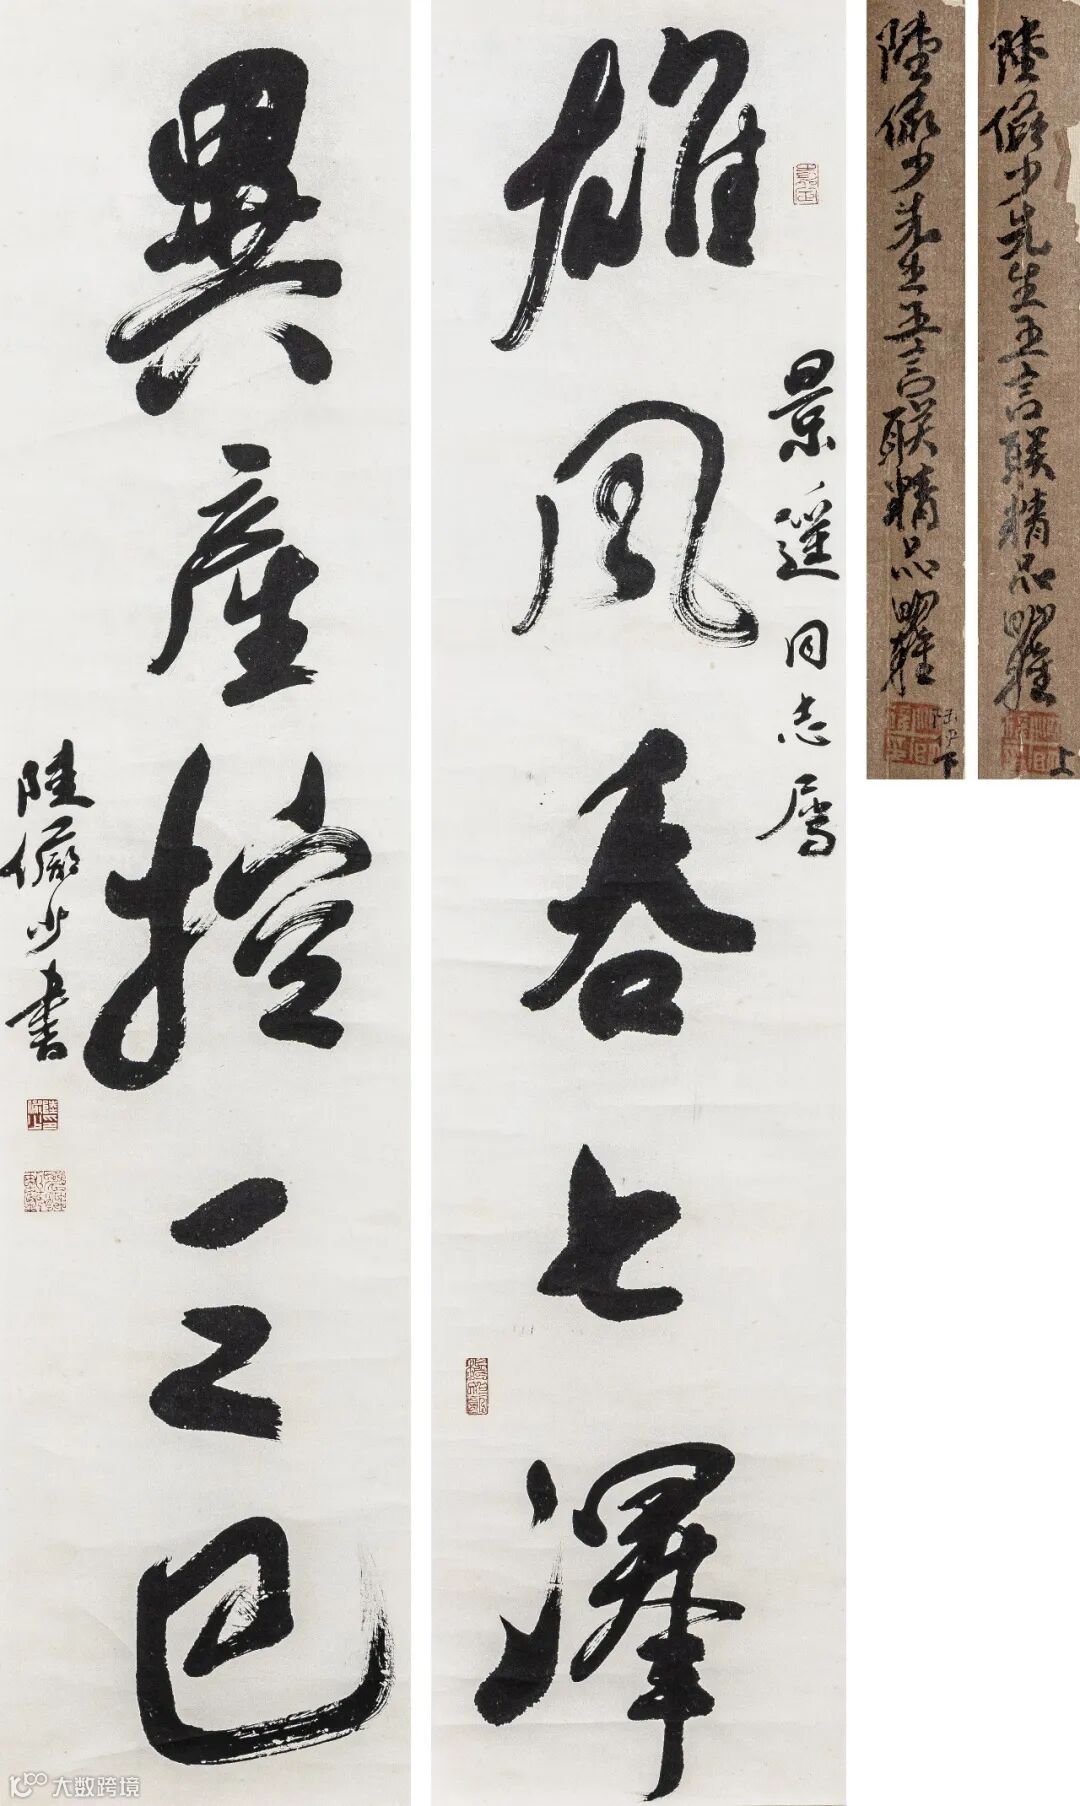 雄风吞七澤
景遥同志属
異産控三巴
陸儼少書
陸儼少先生五言联精品
上
陸儼少先生五言联精品
下
大数跨境